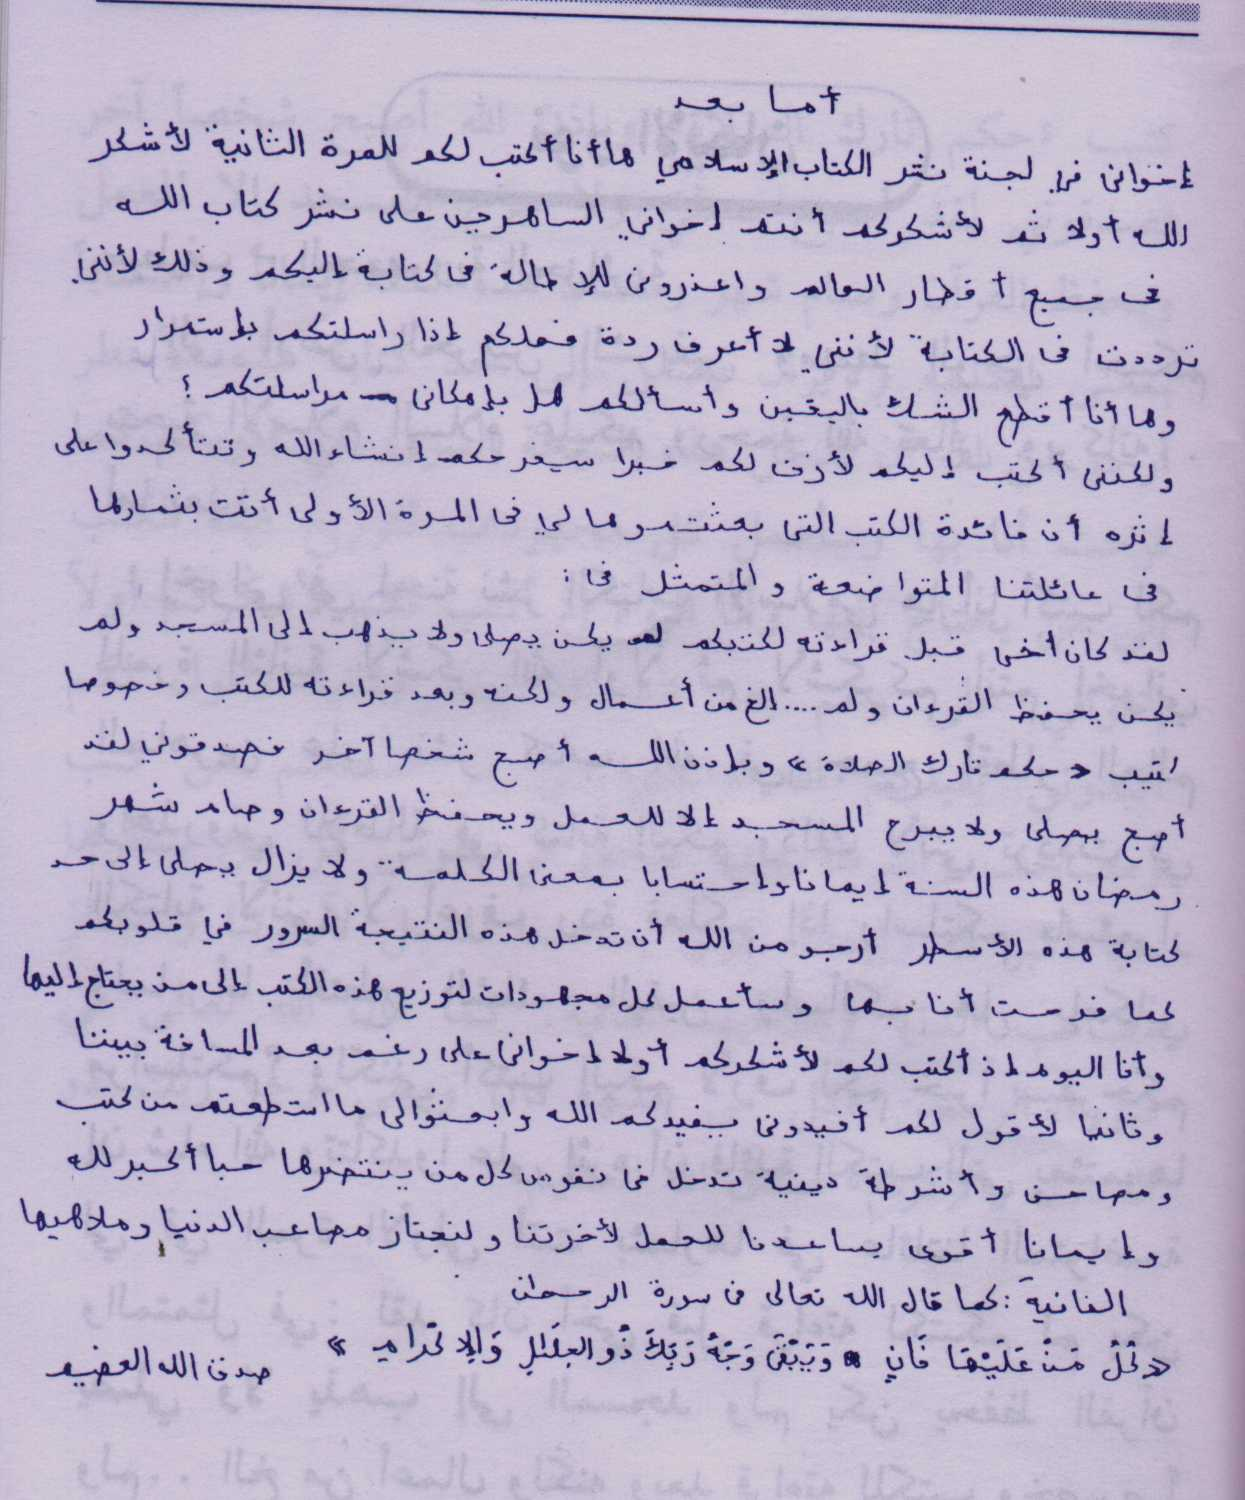 أما بعد
إخواني في لجنة نشر الكتاب الإسلامي ها أنا أكتب لكم للمرة الثانية لأشكر
الله أولا ثم لأشكركم أنتم إخواني الساهرين على نشر كتاب الله
في جميع أقطار العالم واعذروني للإطالة في كتابة إليكم وذلك لأنني
ترددت في الكتابة لأنني لا أعرف ردة فعلكم إذا راسلتكم بإستمرار
وها أنا أقطع الشك باليقين وأسألكم هل بإمكاني مراسلتكم ؟
ولكنني أكتب إليكم لأزف لكم خبرا سيفرحكم إنشاء الله وتتأكدوا على
إثره أن فائدة الكتب التي بعثتموها لي في المرة الأولى أتت بثمارها
في عائلتنا المتواضعة والمتمثل في :
لقد كان أخي قبل قراءته لكتبكم لم يكن يصلي ولا يذهب إلى المسجد ولم
يكن يحفظ القرءان ولم .... إلخ من أعمال ولكنه وبعد قراءته للكتب وخصوصا
كتيب « حكم تارك الصلاة » وبإذن الله أصبح شخصا آخر فصدقوني لقد
أصبح يصلي ولا يبرح المسجد إلا للعمل ويحفظ القرءان وصام شهر
رمضان هذه السنة إيمانا وإحتسابا بمعنى الكلمة ولا يزال يصلي إلى حد
كتابة هذه الأسطر أرجو من الله أن تدخل هذه النتيجة السرور في قلوبكم
كما فرحت أنا بها وسأعمل كل مجهودات لتوزيع هذه الكتب إلى من يحتاج إليها
وأنا اليوم إذ أكتب لكم لأشكركم أولا إخواني على رغم بعد المسافة بيننا
وثانيا لأقول لكم أفيدوني يفيدكم الله وابعثوا لي ما استطعتم من كتب
ومصاحف وأشرطة دينية تدخل في نفوس كل من ينتضرها حبا أكبر لله
وإيمانا أقوى يساعدنا للعمل لأخرتنا ولنجتاز مصاعب الدنيا وملاهيها
الفانية : كما قال الله تعالى في سورة الرحمان
« كُلُّ مَنْ عَلَيْهَا فَانٍ وَيَبْقَى وَجْهُ رَبِّكَ ذُو الجَلَالِ وَالإكْرَامِ » صدق الله العضيم